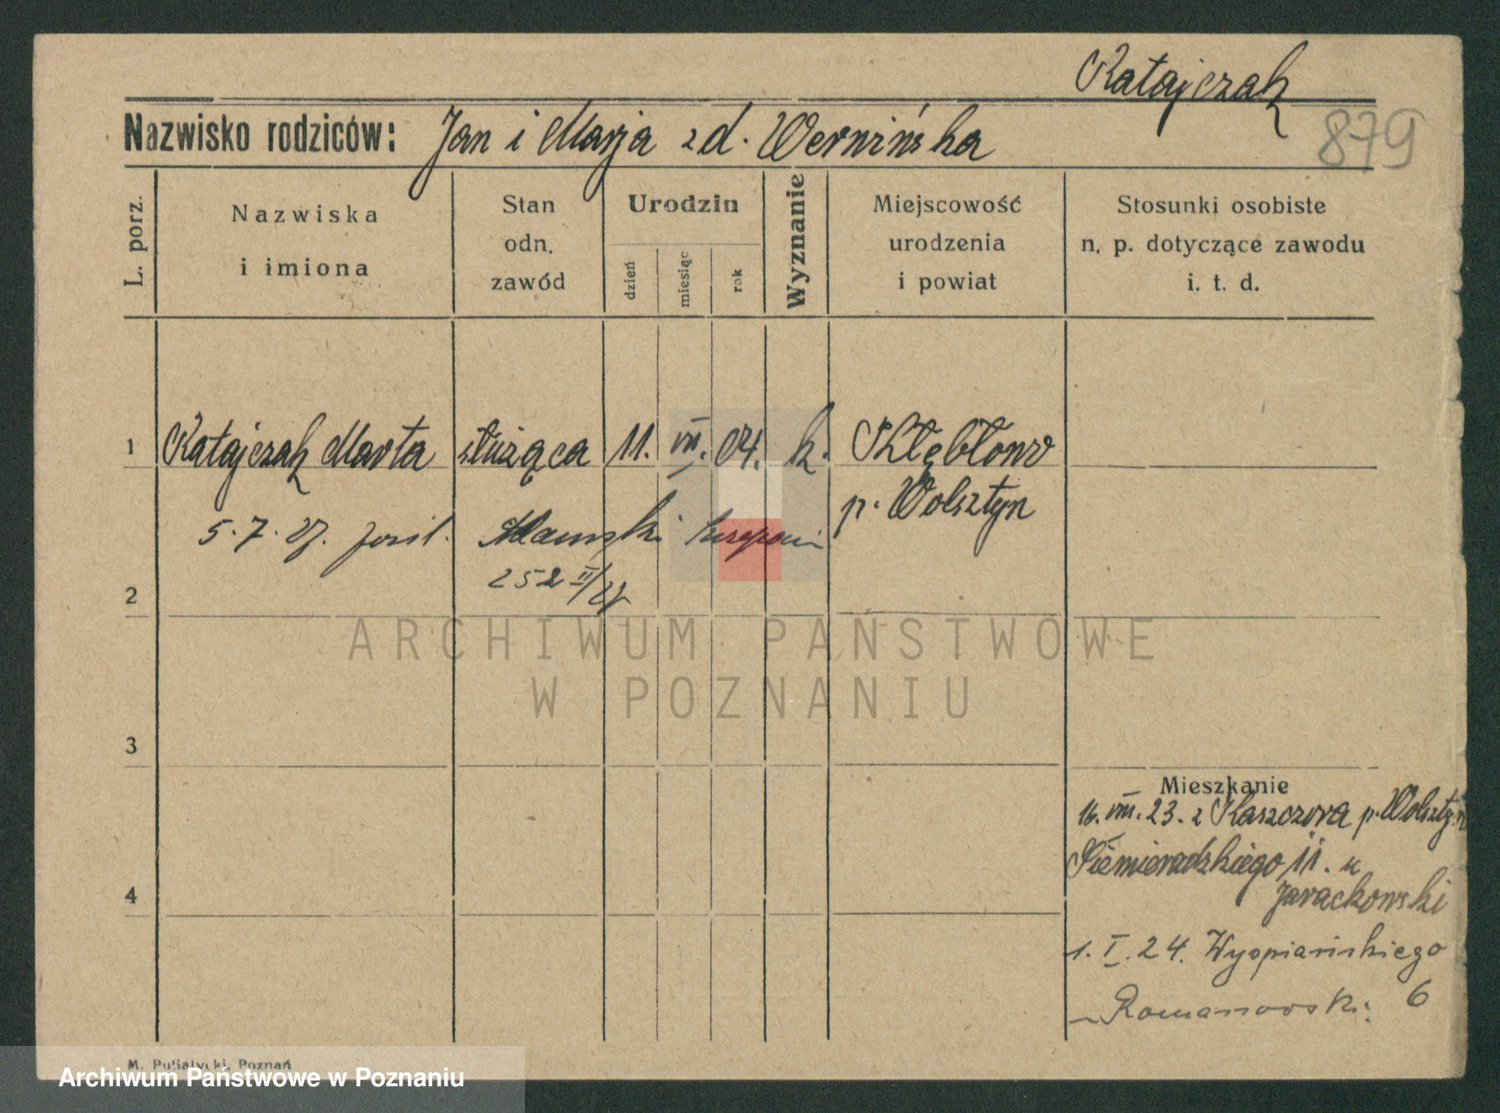 Ratajczak
879
Nazwisko rodziców: Jan i Marja zd. Wernińska
L. porz.
Nazwiska i imiona
Stan odn. zawód
Urodzin
dzień
miesiąc
rok
Wyznanie
Miejscowość urodzenia i powiat
Stosunki osobiste n. p. dotyczące zawodu i. t. d.
1 Ratajczak Marta służąca 11. VII. 04. k. Kłębłowo
p. Wolsztyn
5. 7. 27.
252 II/27
2
3
4
Mieszkanie
16. VIII. 23. z p. Wolsztyn
Siemieradzkiego 11. u
Jarackowski
1. I. 24. Wyspiańskiego
6
Romanowski
M. Putiatycki, Poznań
ARCHIWUM PAŃSTWOWE
W POZNANIU
Archiwum Państwowe w Poznaniu